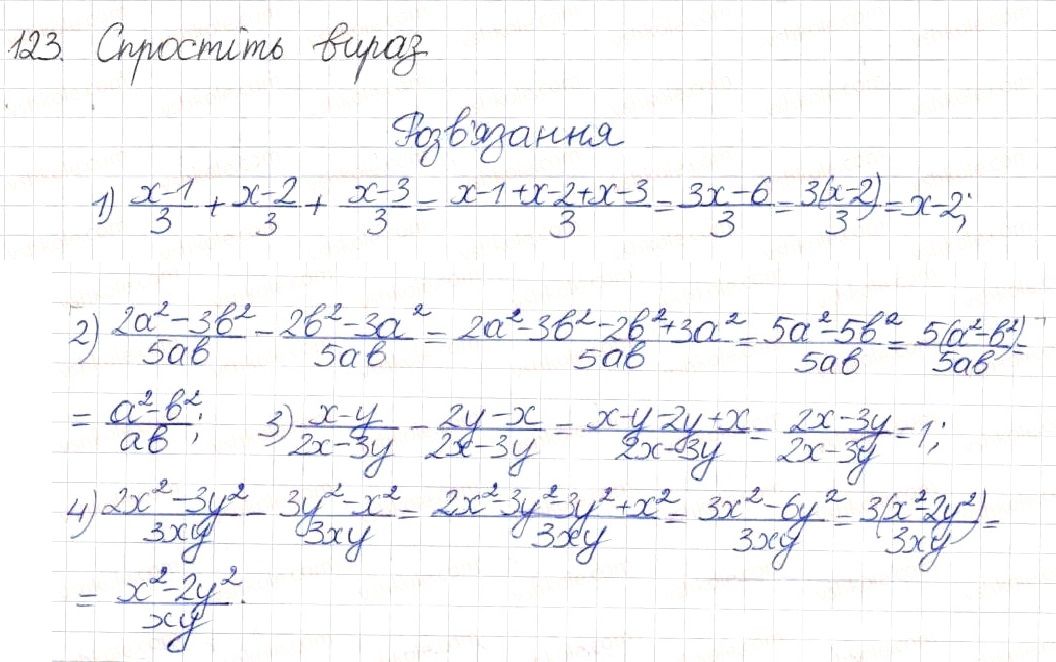 123. Спростіть вираз
Розв'язання
1) (x-1)/3 + (x-2)/3 + (x-3)/3 = (x-1+x-2+x-3)/3 = (3x-6)/3 = 3(x-2)/3 = x-2;
2) (2a²-3b²)/5ab - (2b²-3a²)/5ab = (2a²-3b²-2b²+3a²)/5ab = (5a²-5b²)/5ab = 5(a²-b²)/5ab =
= (a²-b²)/ab; 3) (x-y)/(2x-3y) - (2y-x)/(2x-3y) = (x-y-2y+x)/(2x-3y) = (2x-3y)/(2x-3y) = 1;
4) (2x²-3y²)/3xy - (3y²-x²)/3xy = (2x²-3y²-3y²+x²)/3xy = (3x²-6y²)/3xy = 3(x²-2y²)/3xy =
= (x²-2y²)/xy.